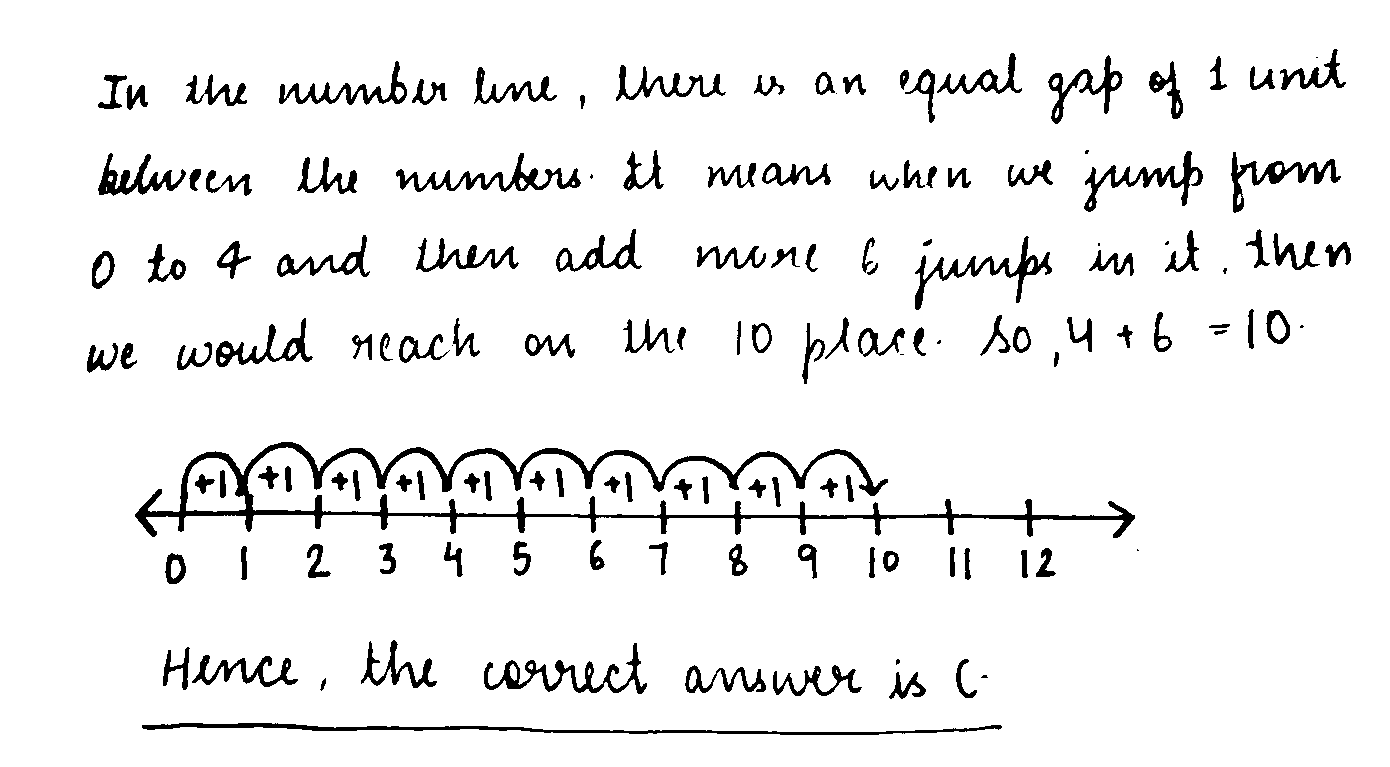 In the number line, there is an equal gap of 1 unit
between the numbers. It means when we jump from
0 to 4 and then add more 6 jumps in it. then
we would reach on the 10 place. So, 4 + 6 = 10.
+1 +1 +1 +1 +1 +1 +1 +1 +1 +1
0 1 2 3 4 5 6 7 8 9 10 11 12
Hence, the correct answer is C.